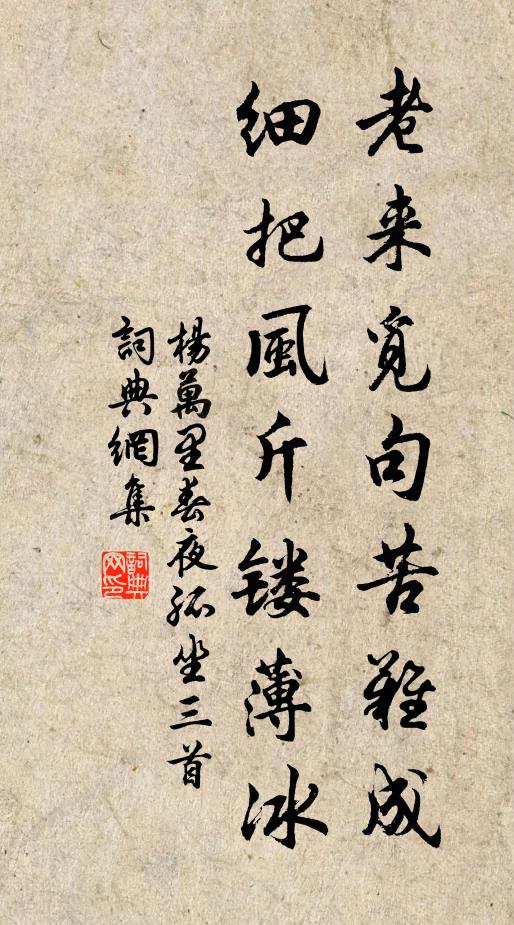 老来覓句苦難成
細把風斤镂薄冰
楊萬里春夜孤坐三首
詞典網集
詞典网印